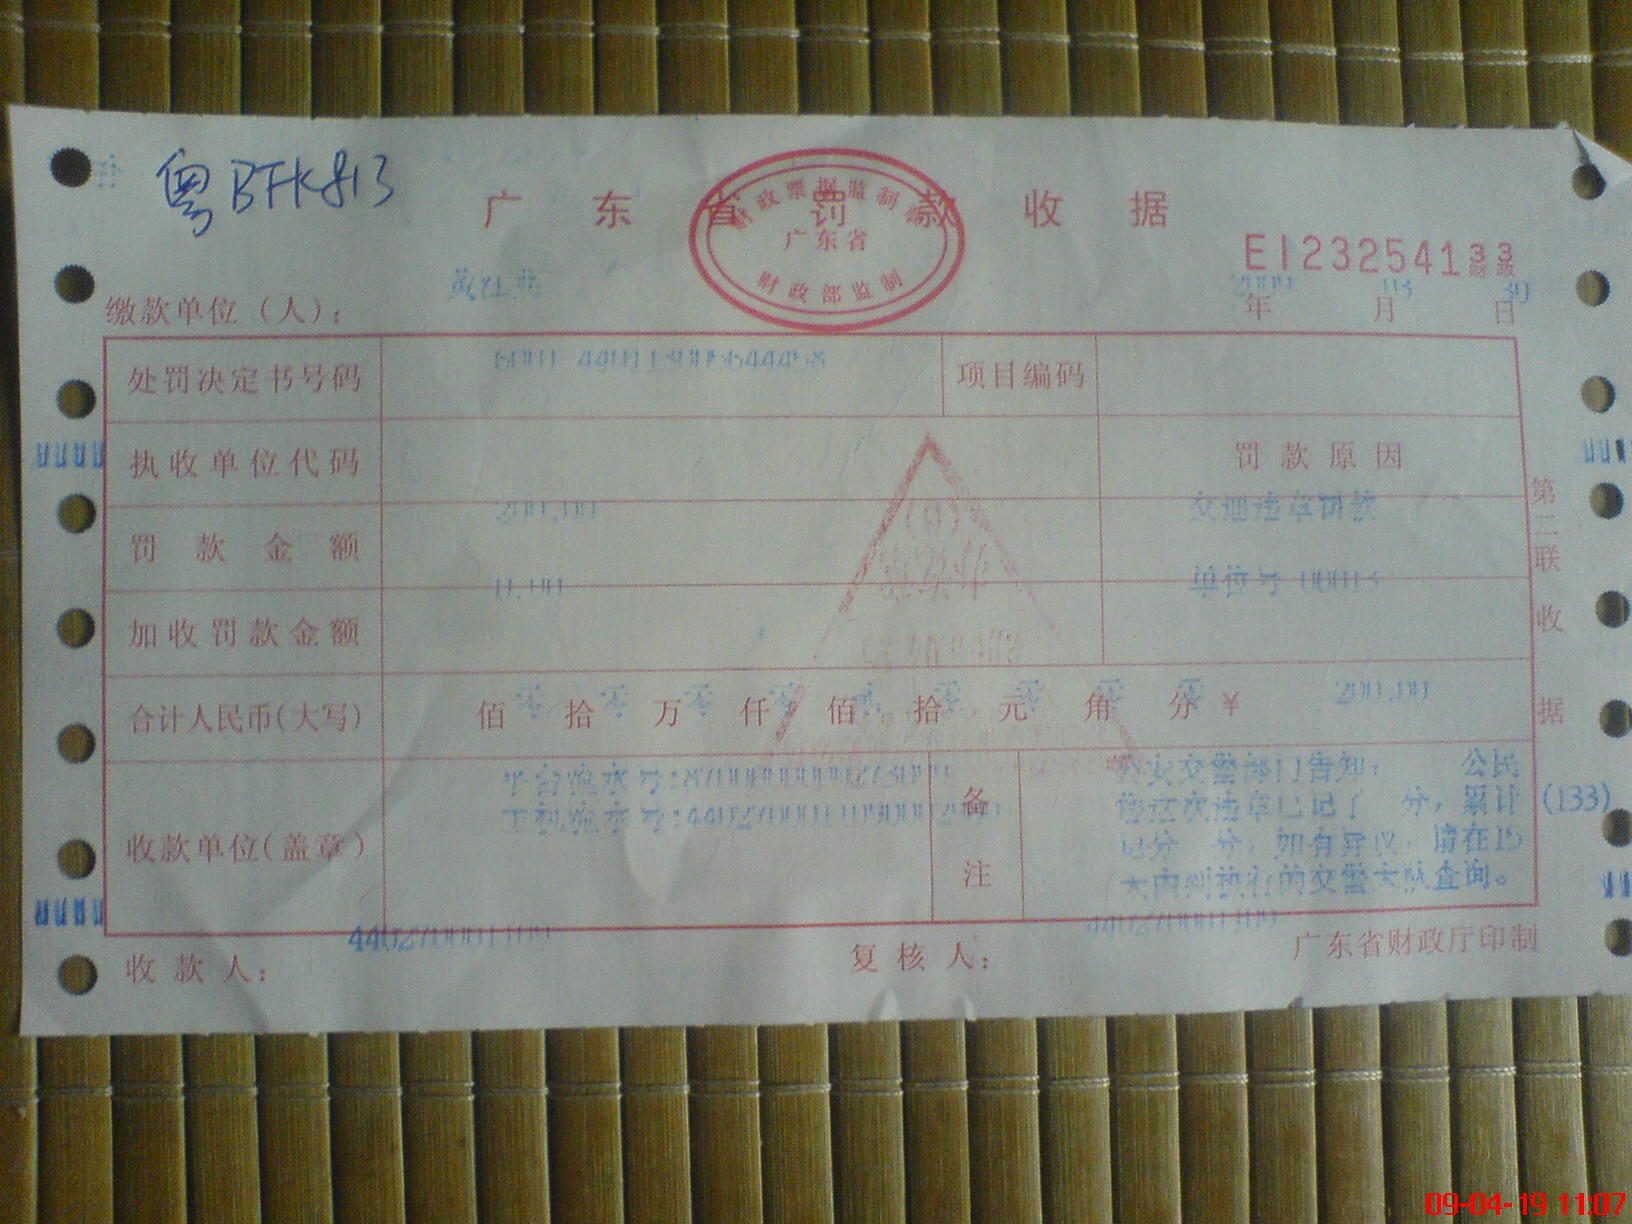 粤BFK813
广东省罚款收据
财政票据监制章
广东省
财政部监制
E12325413 3
财 政
2009年 03月 30日
缴款单位（人）：
处罚决定书号码
项目编码
执收单位代码
罚款原因
罚款金额 200.00
交通违章罚款
加收罚款金额 0.00
单位号 00013
合计人民币(大写) 佰 零 拾 零 万 零 仟 零 佰 拾 零 元 零 角 零 分 零 ¥ 200.00
收款单位(盖章)
平台流水号:
主机流水号:
备注
公安交警部门告知： 公民
您这次违章已记了 分，累计
记分 分，如有异议，请在15
天内到执行的交警大队查询。
(133)
第二联 收据
收款人：
4402700001100
复核人：
广东省财政厅印制
09-04-19 11:07